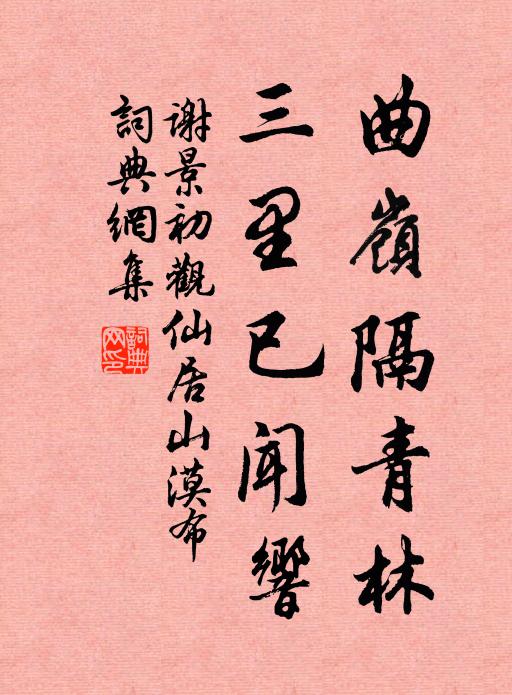 曲嶺隔青林
三里已聞響
謝景初觀仙居山漠布
詞典網集
詞典網印